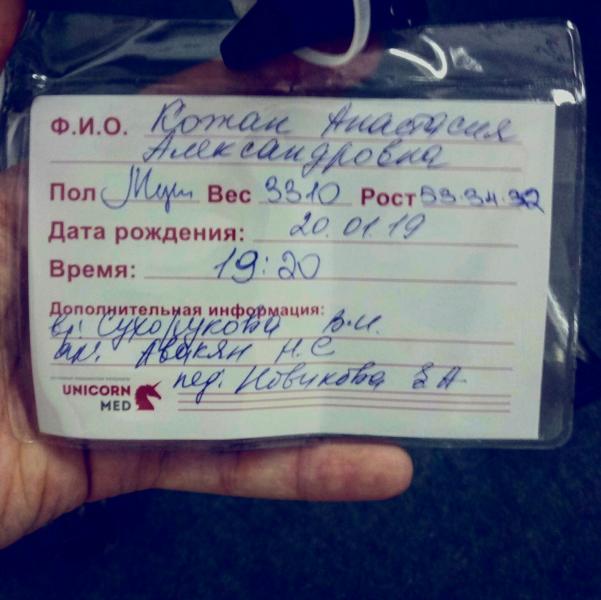 Ф.И.О. Кожан Анастасия
Александровна
Пол Муж Вес 3310 Рост 53.34.32
Дата рождения: 20.01.19
Время: 19:20
Дополнительная информация:
вр: Сухорукова В.И.
ак: Авакян Н.С
пед: Новикова Е.А
UNICORN
MED